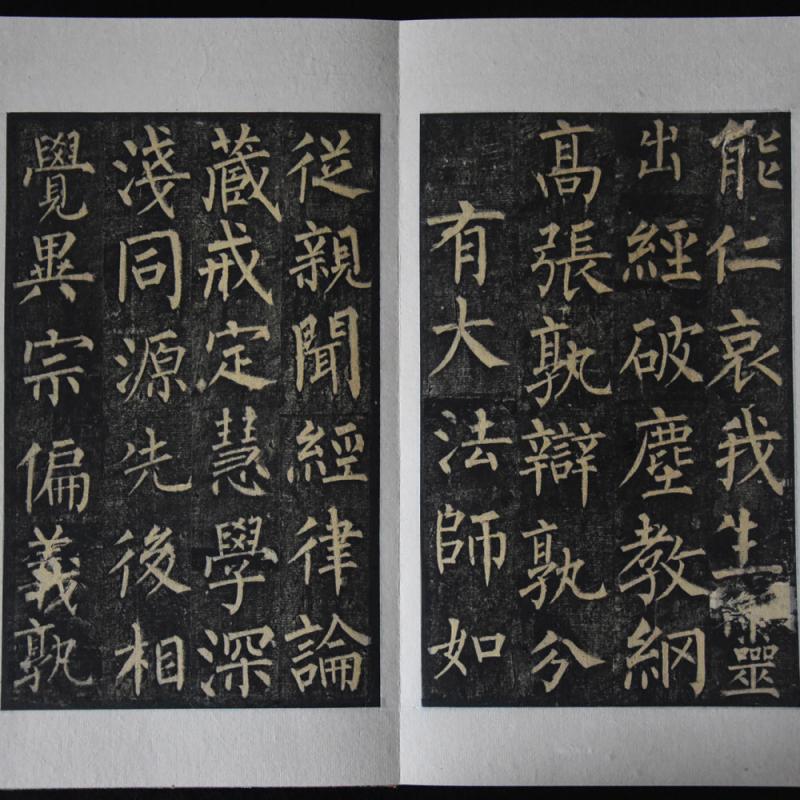 能仁哀我生靈
出經破塵教綱
高張孰辯孰分
有大法師如
從親聞經律論
藏戒定慧學深
淺同源先後相
覺異宗偏義孰